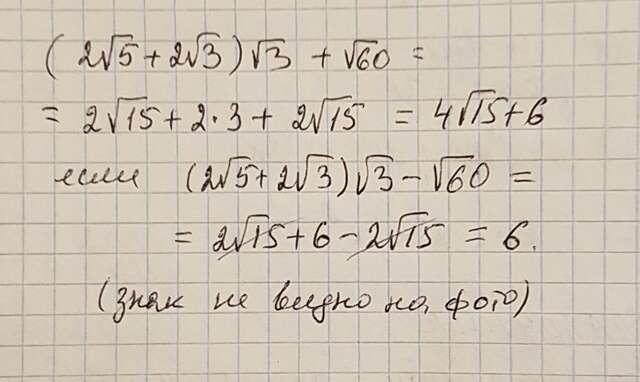 (2√5 + 2√3)√3 + √60 =
= 2√15 + 2·3 + 2√15 = 4√15 + 6
если (2√5 + 2√3)√3 − √60 =
= 2√15 + 6 − 2√15 = 6.
(знак не видно на фото)